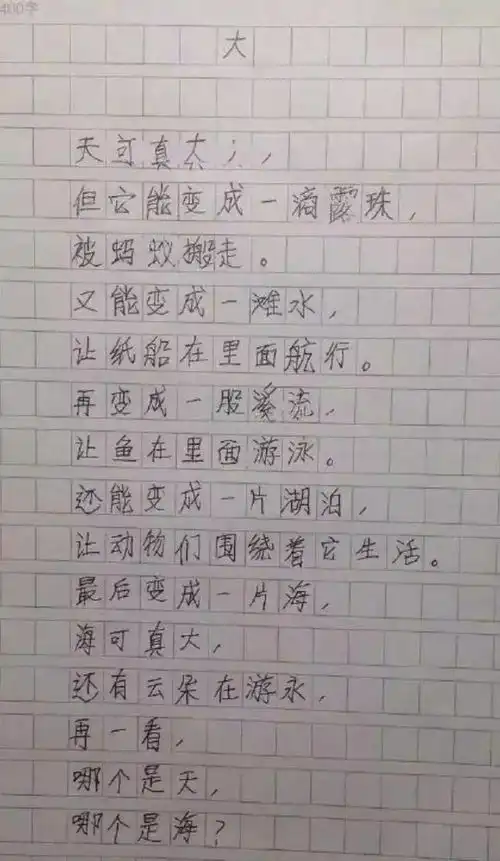 400字
大
天可真大,
但它能变成一滴露珠,
被蚂蚁搬走。
又能变成一滩水,
让纸船在里面航行。
再变成一股溪流,
让鱼在里面游泳。
还能变成一片湖泊,
让动物们围绕着它生活。
最后变成一片海,
海可真大,
还有云朵在游永,
再一看,
哪个是天,
哪个是海?